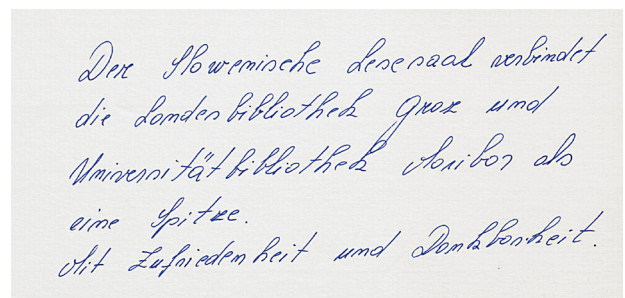 Der Slowenische Lesesaal verbindet
die Landesbibliothek Graz und
Universitätbibliothek Maribor als
eine Spitze.
Mit Zufriedenheit und Dankbarkeit.